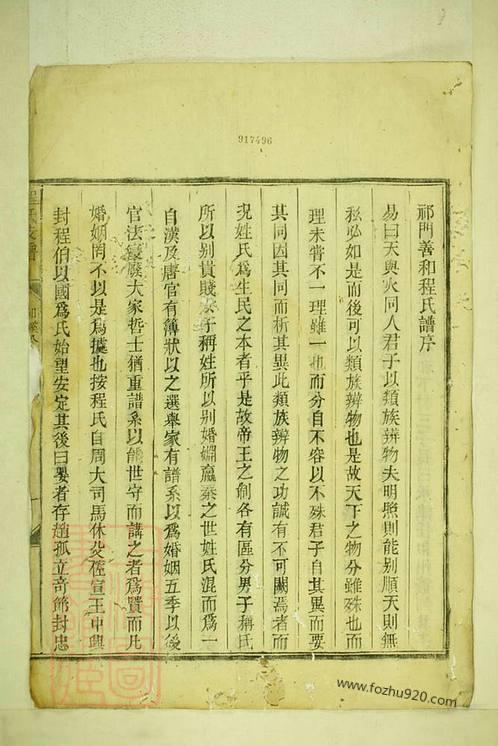 917496
祁門善和程氏譜序
易曰天與火同人君子以類族辨物夫明照則能别順天則無
私必如是而後可以類族辨物也是故天下之物分雖殊也而
理未嘗不一理雖一也而分自不容以不殊君子自其異而要
其同因其同而析其異此類族辨物之功誠有不可闕焉者而
況姓氏爲生民之本者乎是故帝王之制各有區分男子稱氏
所以别貴賤女子稱姓所以别婚姻嬴秦之世姓氏混而爲一
自漢及唐官有簿狀以之選舉家有譜系以爲婚姻五季以後
官法蕩廢大家哲士猶重譜系以能世守而講之者爲賢而凡
婚姻罔不以是爲據也按程氏自周大司馬休父佐宣王中興
封程伯以國爲氏始望安定其後曰嬰者存趙孤立奇節封忠
www.fozhu920.com